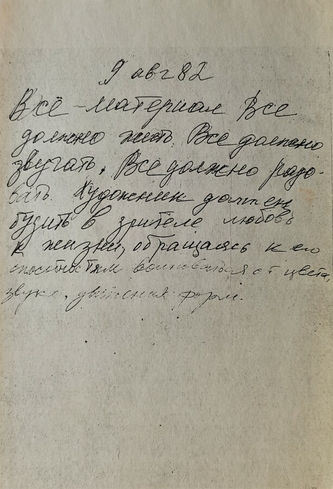 9 авг 82
Всё - материал Все
должно жить. Все должно
звучать. Все должно радо-
вать. Художник должен
будить в зрителе любовь
к жизни, обращаясь к его
от цвета,
звука, движения форм.